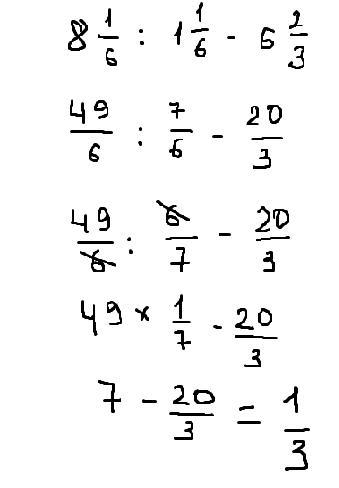 8 1/6 : 1 1/6 - 6 2/3
49/6 : 7/6 - 20/3
49/6 : 6/7 - 20/3
49 × 1/7 - 20/3
7 - 20/3 = 1/3